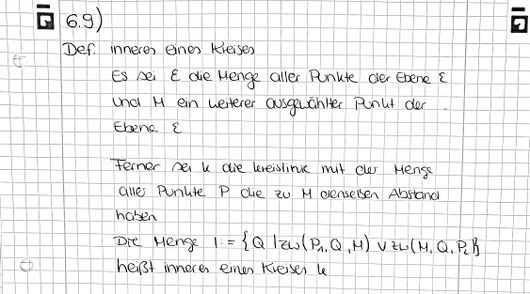 6.9)
Def. inneres eines Kreises
Es sei ε die Menge aller Punkte der Ebene ε
und M ein weiterer ausgewählter Punkt der
Ebene ε
Ferner sei k die kreislinie mit der Menge
aller Punkte P die zu M denselben Abstand
haben
Die Menge I:= {Q | zw(P₁,Q,M) ∨ zw(M,Q,P₂)}
heißt inneres eines Kreises k